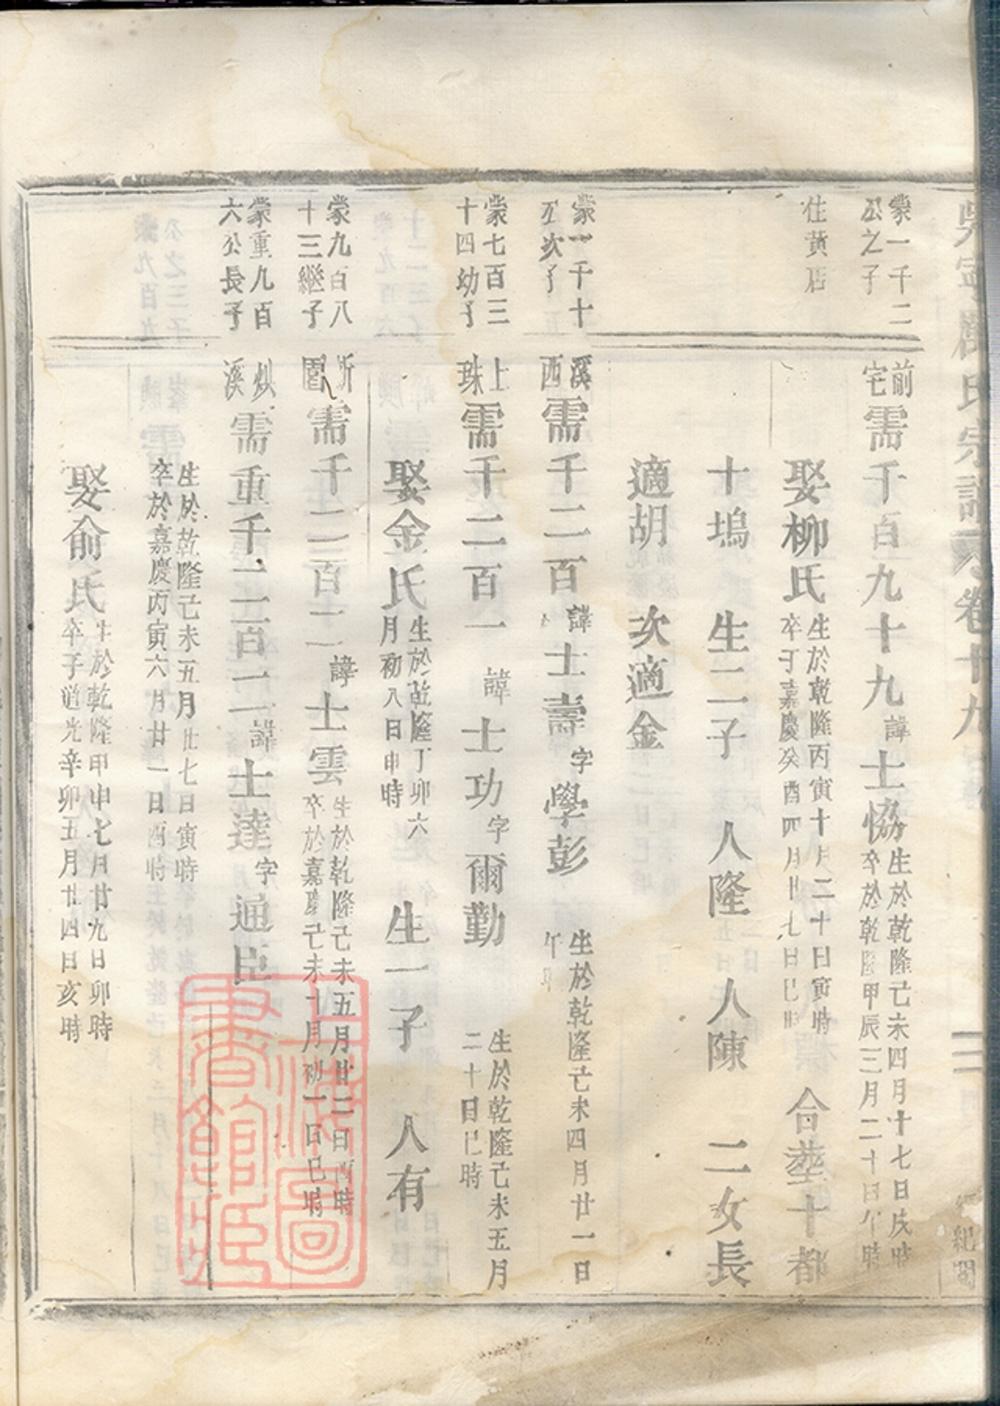 氏宗譜 卷十九
蒙一千二
公之子
前宅
需千百九十九
諱
士協
生於乾隆己未四月十七日戌時
卒於乾隆甲辰三月二十日午時
住黃店
娶柳氏
生於乾隆丙寅十月二十日寅時
卒于嘉慶癸酉四月廿七日巳時
合塟十都
十塢 生二子 人隆 人陳 二女長
適胡 次適金
蒙一千十
公次子
溪西
需千二百
諱
士壽
字
學彭
生於乾隆己未四月廿一日
午時
蒙七百三
十四幼子
上珠
需千二百一
諱
士功
字
爾勤
生於乾隆己未五月
二十日巳時
娶金氏
生於乾隆丁卯六
月初八日申時
生一子 人有
蒙九百八
十三繼子
需千二百二
諱
士雲
生於乾隆己未五月廿二日酉時
卒於嘉慶己未十月初一日巳時
蒙重九百
六公長子
溪
需重千二百二
諱
士達
字
通臣
生於乾隆己未五月廿七日寅時
卒於嘉慶丙寅六月廿一日酉時
娶俞氏
生於乾隆甲申七月廿九日卯時
卒于道光辛卯五月廿四日亥時
上海圖書館藏